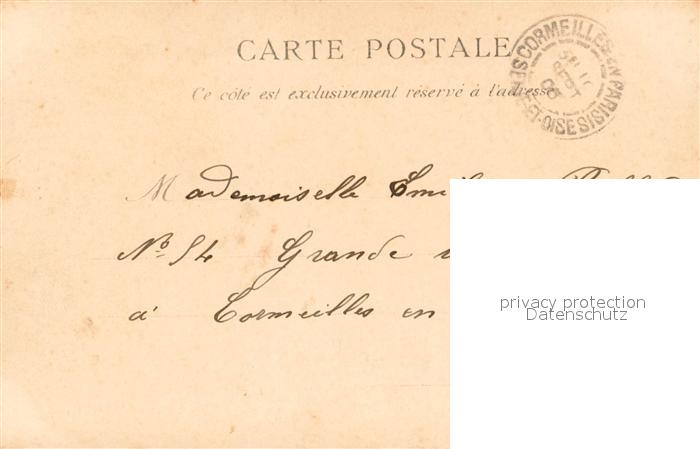 CARTE POSTALE
Ce côté est exclusivement réservé à l'adresse
CORMEILLES-EN-PARISIS SEINE-ET-OISE
SEPT
Mademoiselle
No 54 Grande
à Cormeilles en
privacy protection
Datenschutz